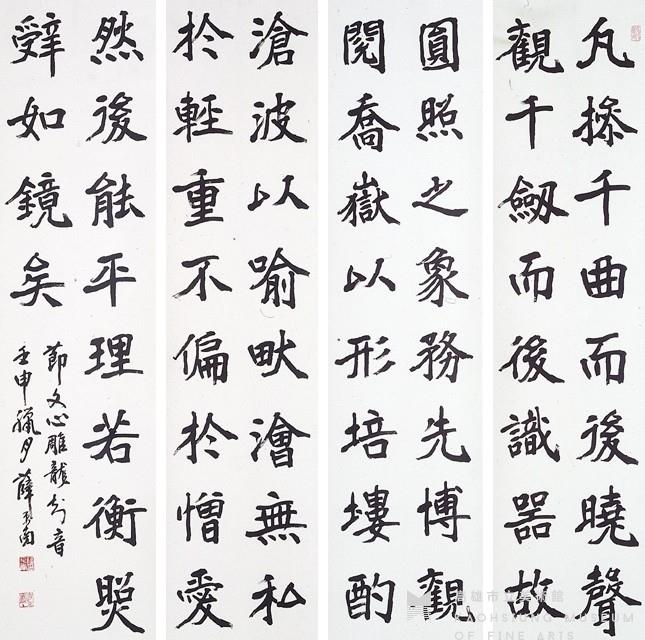 凡操千曲而後曉聲
觀千劒而後識器故
圓照之象務先博觀
閱喬嶽以形培塿酌
滄波以喻畎澮無私
於輕重不偏於憎愛
然後能平理若衡照
辭如鏡矣
節文心雕龍知音
壬申臘月薛平南
高雄市立美術館
KAOHSIUNG MUSEUM
OF FINE ARTS